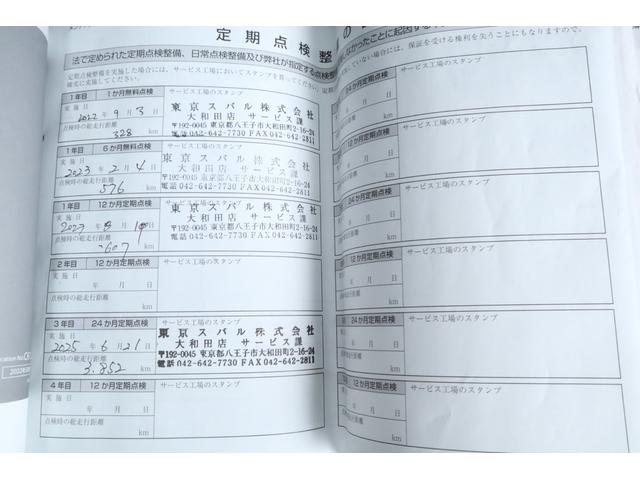 定期点検整
法で定められた定期点検整備、日常点検整備及び弊社が指定する点検整
定期点検整備を実施した場合には、サービス工場においてスタンプを貰ってください。定期
確実に実施してください。
1年目 1か月無料点検 サービス工場のスタンプ
実施日
2022年9月3日
点検時の総走行距離
328 km
東京スバル株式会社
大和田店 サービス課
〒192-0045 東京都八王子市大和田町2-16-24
電話 042-642-7730 FAX 042-642-2811
1年目 6か月無料点検 サービス工場のスタンプ
実施日
2023年2月4日
点検時の総走行距離
576 km
東京スバル株式会社
大和田店 サービス課
〒192-0045 東京都八王子市大和田町2-16-24
電話 042-642-7730 FAX 042-642-2811
1年目 12か月定期点検 サービス工場のスタンプ
実施日
点検時の総走行距離
607 km
東京スバル株式会社
大和田店 サービス課
〒192-0045 東京都八王子市大和田町2-16-24
電話 042-642-7730 FAX 042-642-2811
2年目 12か月定期点検 サービス工場のスタンプ
実施日
年 月 日
点検時の総走行距離
km
3年目 24か月定期点検 サービス工場のスタンプ
実施日
2025年6月21日
点検時の総走行距離
3,852 km
東京スバル株式会社
大和田店 サービス課
〒192-0045 東京都八王子市大和田町2-16-24
電話 042-642-7730 FAX 042-642-2811
4年目 12か月定期点検 サービス工場のスタンプ
実施日
年 月 日
点検時の総走行距離
km
なかったことに起因する
していない場合には、保証を受ける権利を失うことにもなりますので、
サービス工場のスタンプ
月 日
km
12か月定期点検 サービス工場のスタンプ
月 日
km
24か月定期点検 サービス工場のスタンプ
年 月 日
km
12か月定期点検 サービス工場のスタンプ
年 月 日
km
24か月定期点検 サービス工場のスタンプ
年 月 日
km
12か月定期点検 サービス工場のスタンプ
年 月 日
km